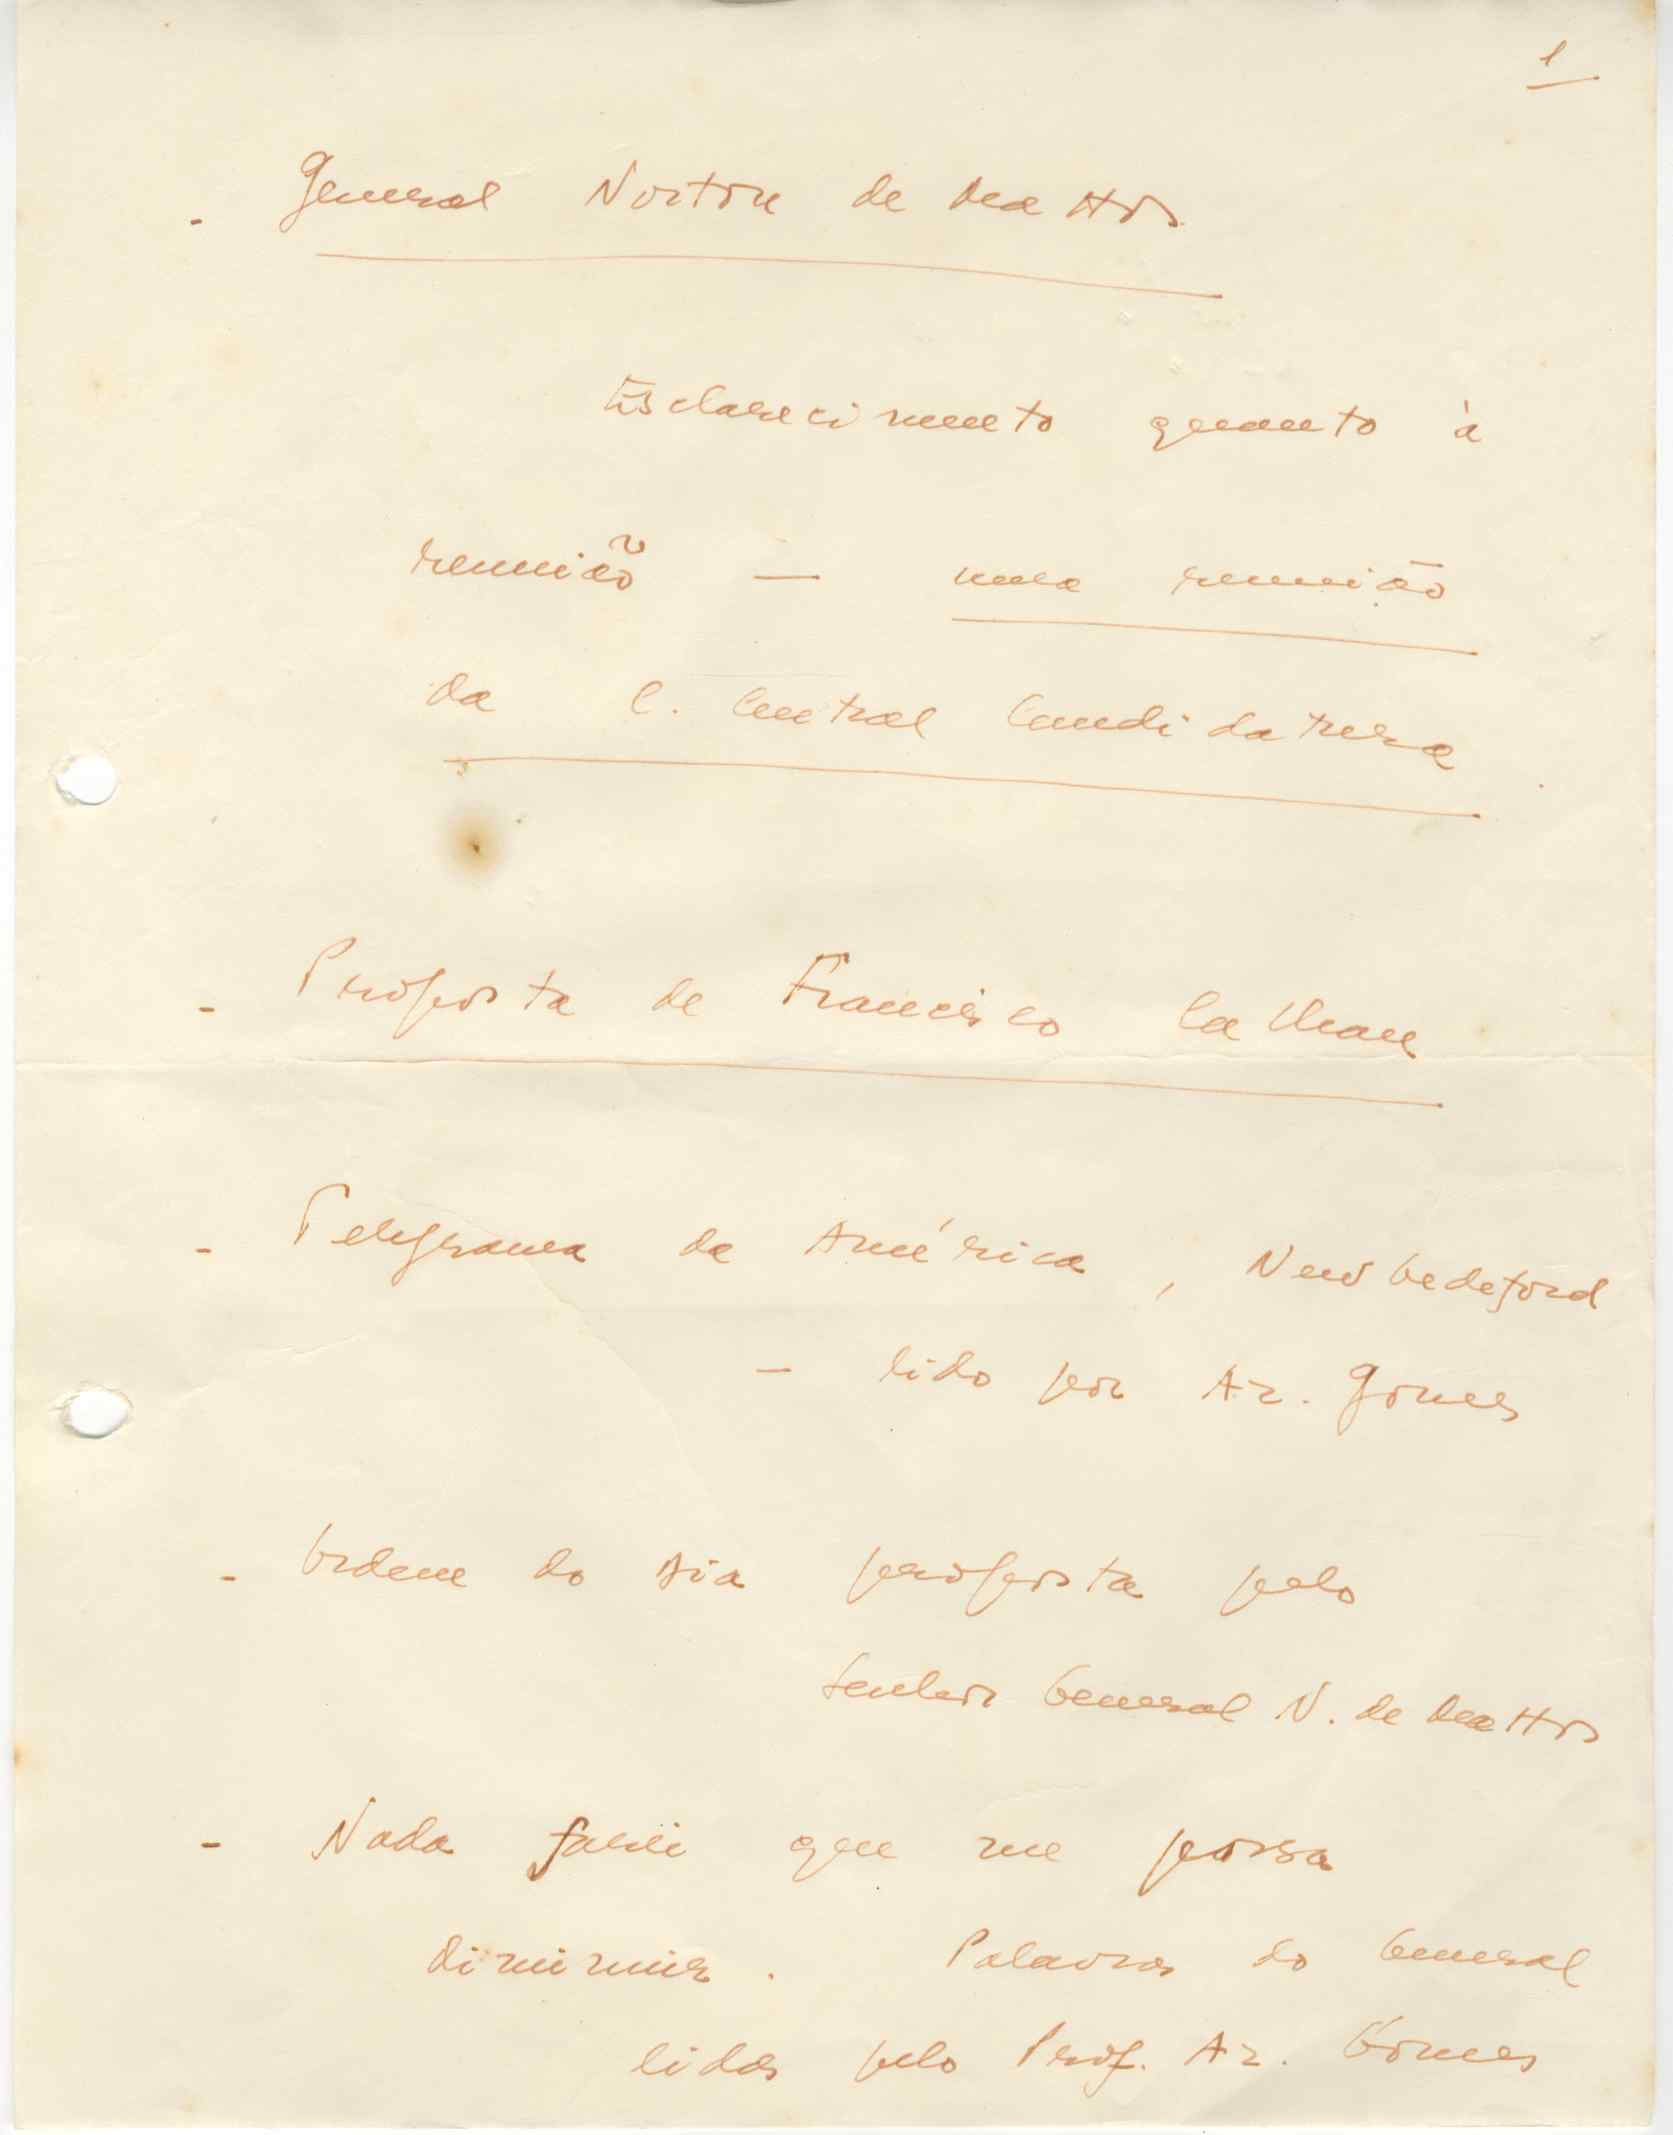 1
- General Norton de Mattos
Esclarecimento quanto à
reunião — uma reunião
da C. Central Candidatura
- Proposta de Francisco
- Telegrama da América, New bedeford
- lido por Az. Gomes
- Ordem do dia proposta pelo
Senhor General N. de Mattos
- Nada farei que me possa
diminuir. Palavras do General
lidas pelo Prof. Az. Gomes